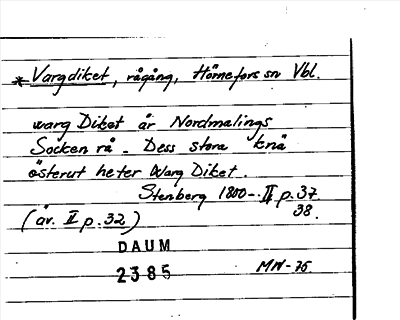 * Vargdiket, rågång, Hörnefors sn Vbl.
warg Diket är Nordmalings
Socken rå - Dess stora knä
österut heter Warg Diket.
Stenberg 1800-. II p. 37
38.
(äv. II p. 32)
DAUM
2385
MW-75